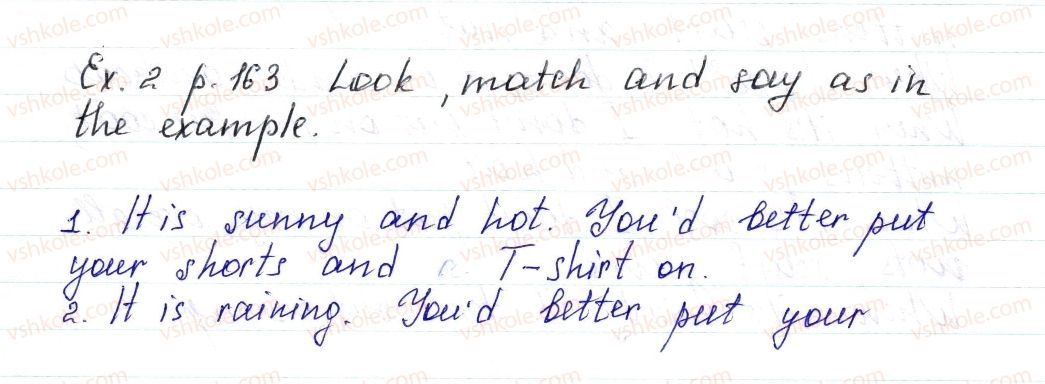 Ex. 2 p. 163 Look, match and say as in
the example.
1. It is sunny and hot. You'd better put
your shorts and a T-shirt on.
2. It is raining. You'd better put your